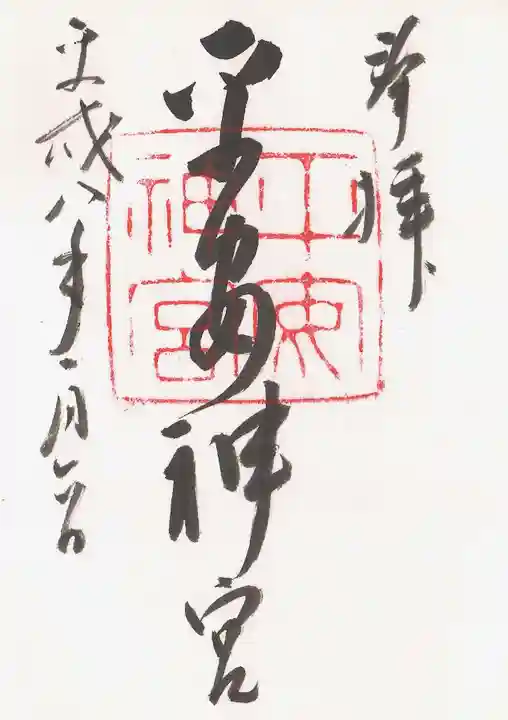 奉拝
平安神宮
平安神宮
平成八年一月六日